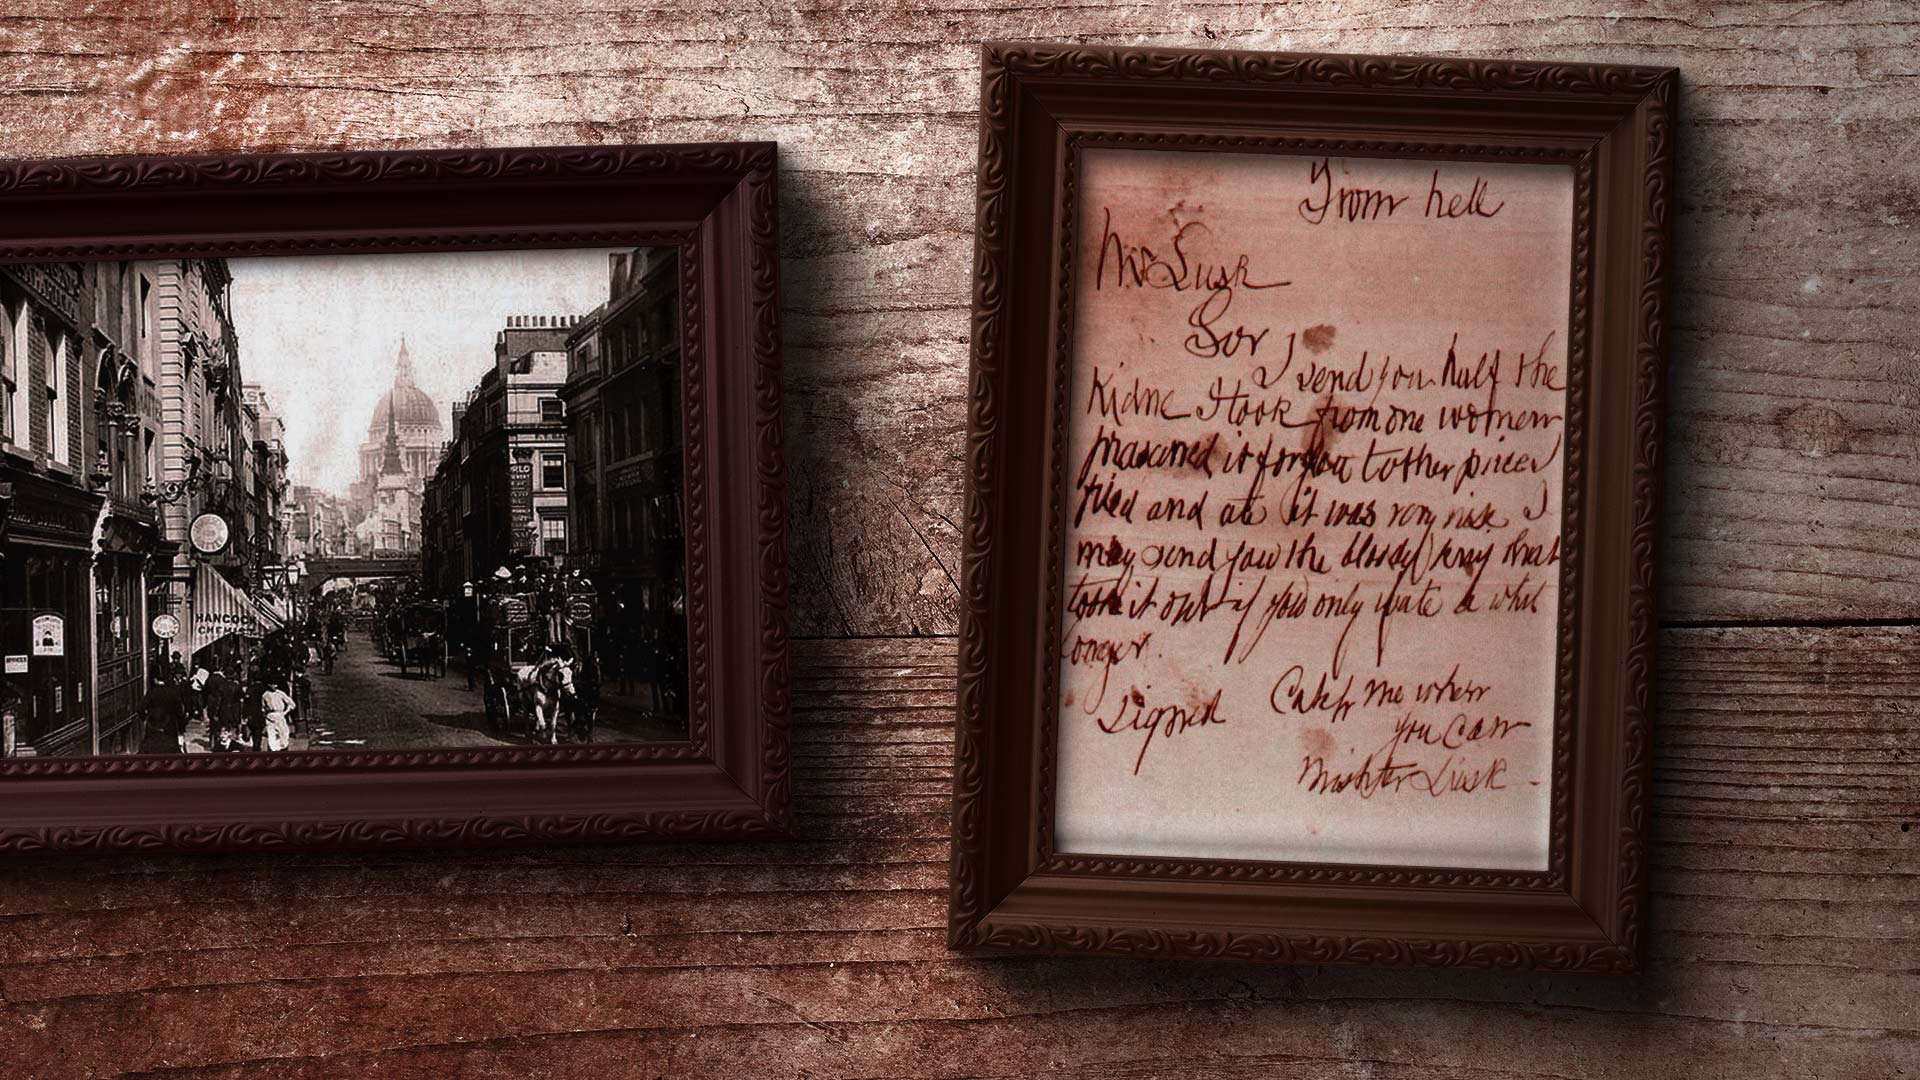 HANCOCK
From hell
Mr Lusk
Sor
I send you half the
Kidne I took from one women
prasarved it for you tother piece I
fried and ate it was very nise I
may send you the bloody knif that
took it out if you only wate a whil
longer.
signed Catch me when
you Can
Mishter Lusk -